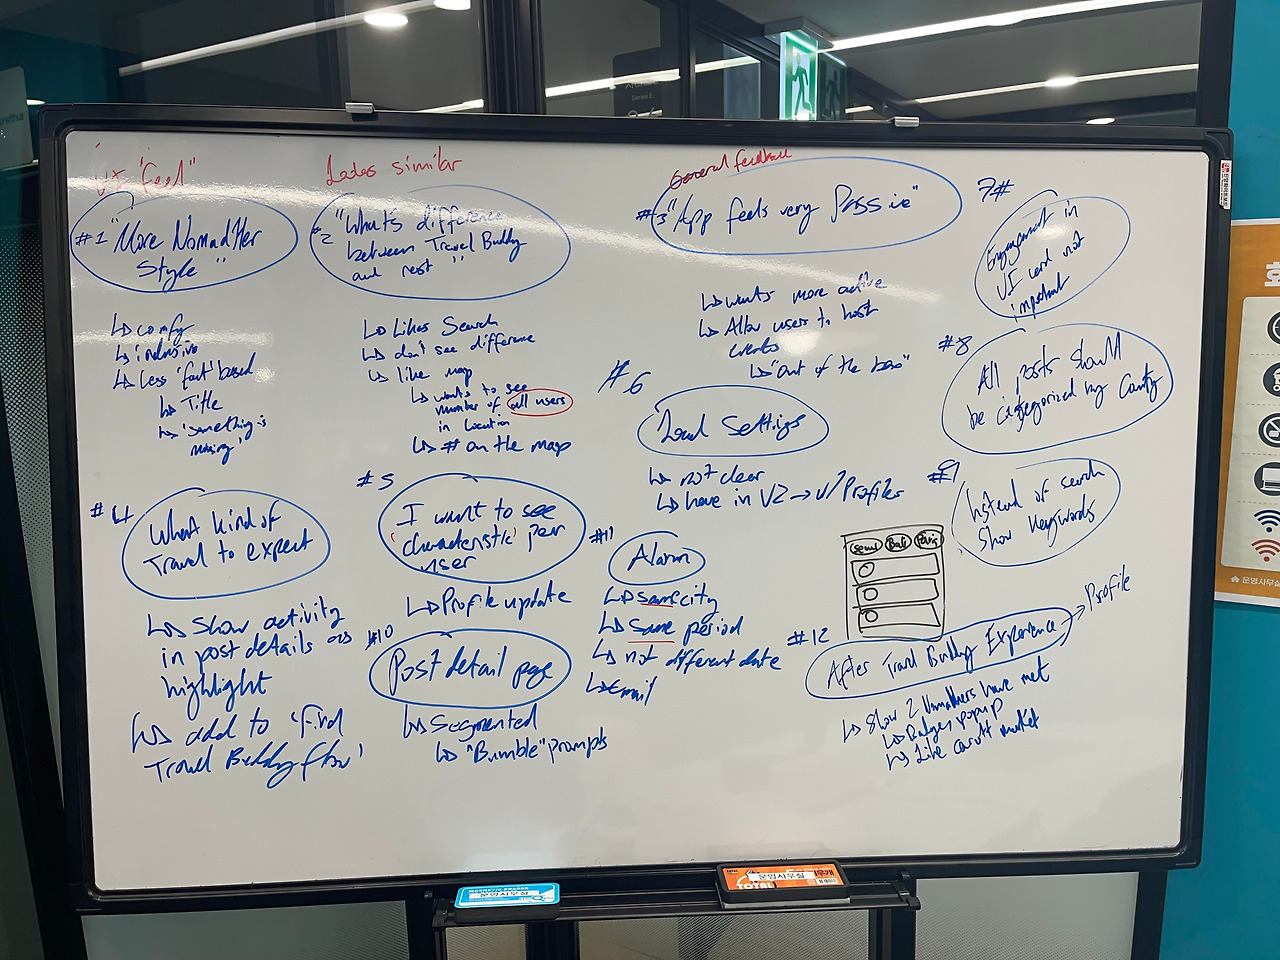 UI 'feel"
#1 "More NomadHer
Style"
↳ comfy
↳ inclusive
↳ less 'fact' based
↳ Title
↳ 'something is
missing'
Looks similar
#2 "What's difference
between Travel Buddy
and rest"
↳ Likes Search
↳ don't see difference
↳ like map
↳ wants to see
number of all users
in location
↳ # on the map
General feedback
#3 "App feels very Passive"
↳ wants more active
↳ Allow users to host
events
↳ "Out of the box"
#4
What kind of
Travel to expect
↳ Show activity
in post details as
highlight
↳ add to 'find
Travel Buddy flow'
#5
I want to see
'characteristic' per
user
↳ Profile update
#6
Settings
↳ not clear
↳ have in V2 → w/ Profiles
7#
Engagement in
UI not
important
#8
All posts should
be categorized by County
#9
Instead of search
Show Keywords
Seoul Bali Paris
#10
Post detail page
↳ Segmented
↳ "Bumble" prompts
#11
Alarm
↳ same city
↳ same period
↳ not different date
↳ Email
#12
After Travel Buddy Experience → Profile
↳ Show 2 NomadHers have met
↳ Badge popup
↳ Like market
운영사무실
운영사무실
TOTAL
MAGNETIC ERASER
Series E
운영사무실